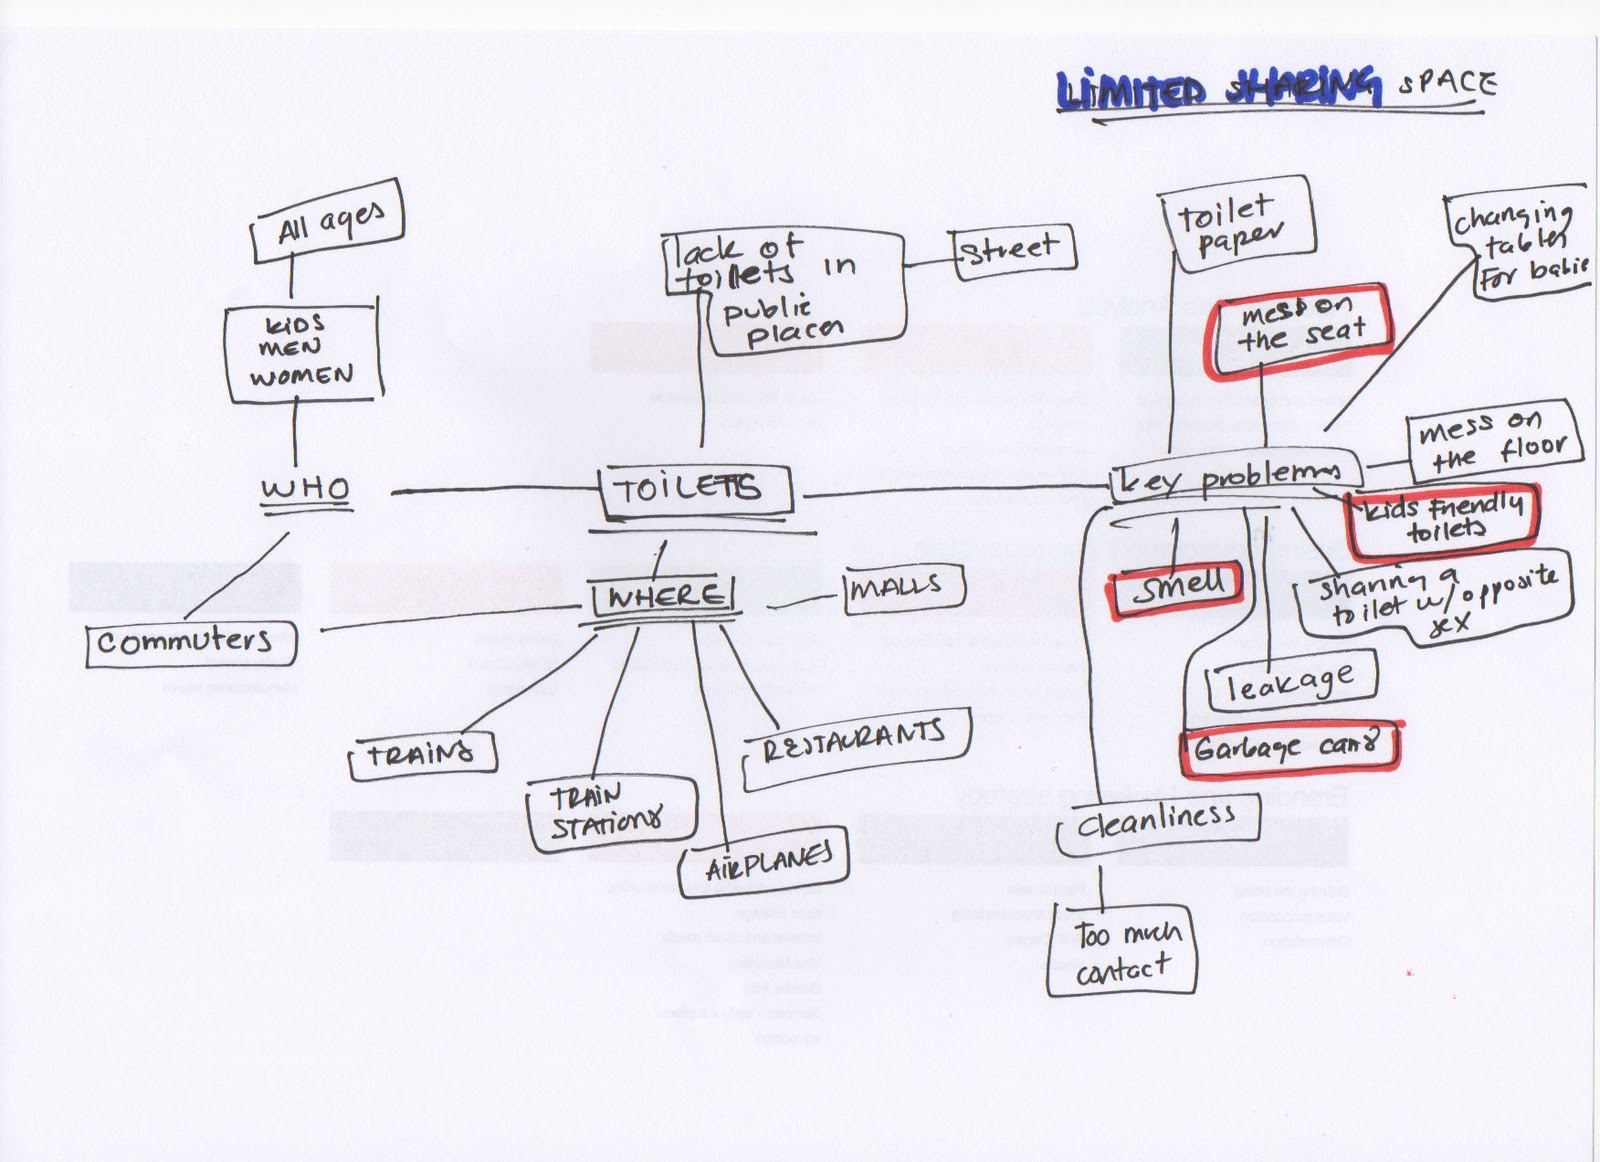 LIMITED SHARING SPACE
All ages
KIDS
MEN
WOMEN
WHO
COMMUTERS
lack of
toilets in
public
places
Street
TOILETS
WHERE
MALLS
TRAINS
TRAIN
STATIONS
AIRPLANES
RESTAURANTS
toilet
paper
changing
tables
For babie
mess on
the seat
key problems
mess on
the floor
kids friendly
toilets
smell
sharing a
toilet w/ opposite
sex
leakage
Garbage cans
Cleanliness
Too much
contact